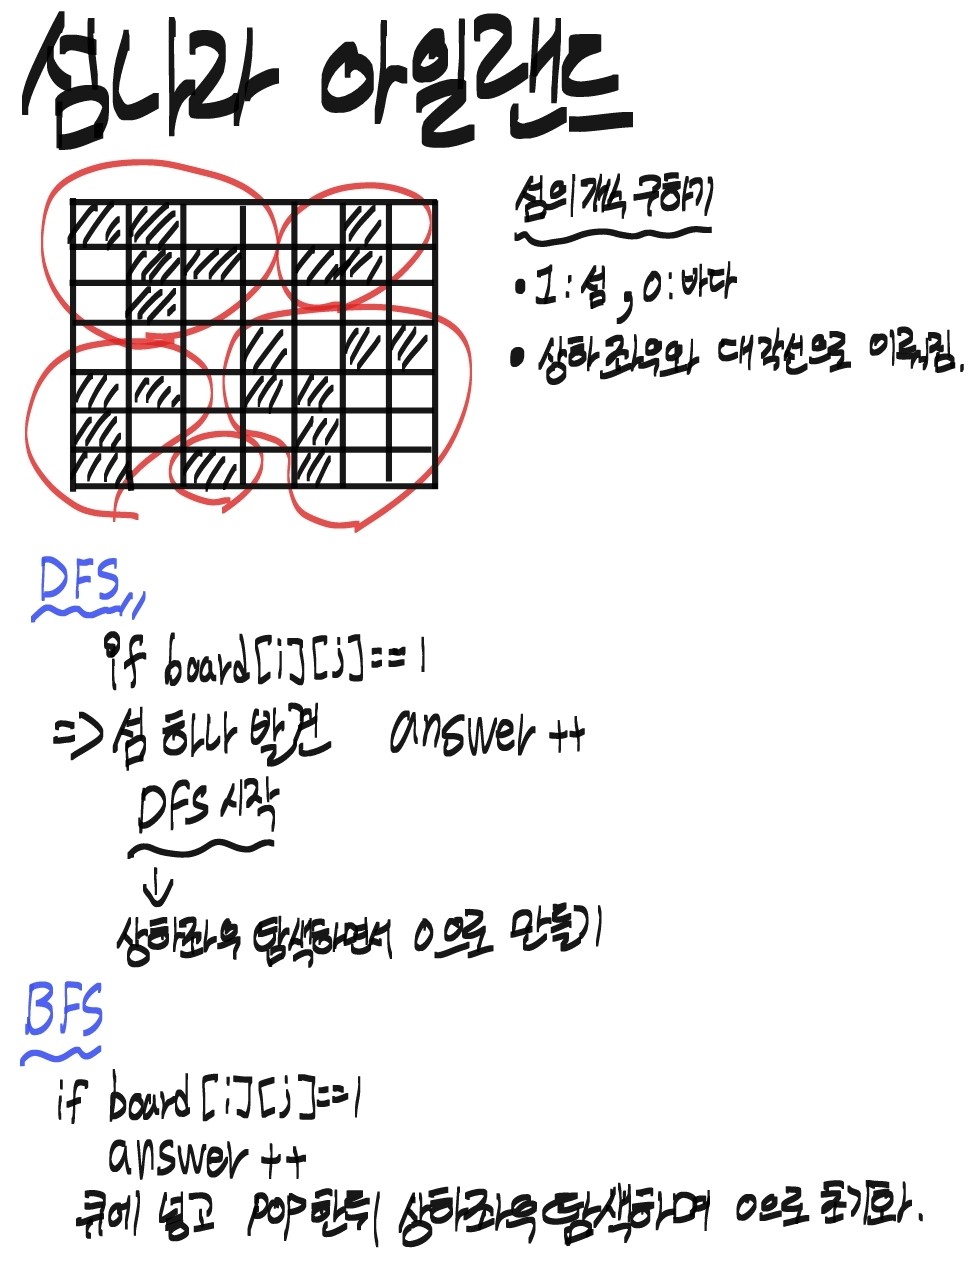 섬나라 아일랜드
섬의 개수 구하기
• 1 : 섬 , 0 : 바다
• 상하좌우와 대각선으로 이뤄짐.
DFS
if board[i][j]==1
=> 섬 하나 발견 answer ++
DFS 시작
↓
상하좌우 탐색하면서 0으로 만들기
BFS
if board[i][j]==1
answer ++
큐에 넣고 POP한뒤 상하좌우탐색하며 0으로 초기화.